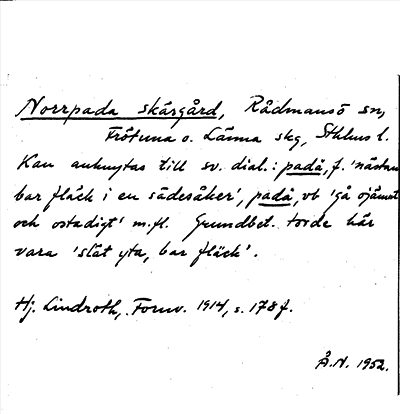 Norrpada skärgård, Rådmansö sn,
Frötuna o. Länna skg, Sthlms l.
Kan anknytas till sv. dial.: pada, f. 'nästan
bar fläck i en sädesåker', pada, vb 'gå ojämnt
och ostadigt' m.fl. Grundbet. torde här
vara 'slät yta, bar fläck'.
Hj. Lindroth, Fornv. 1914, s. 178 f.
Å.N. 1952.